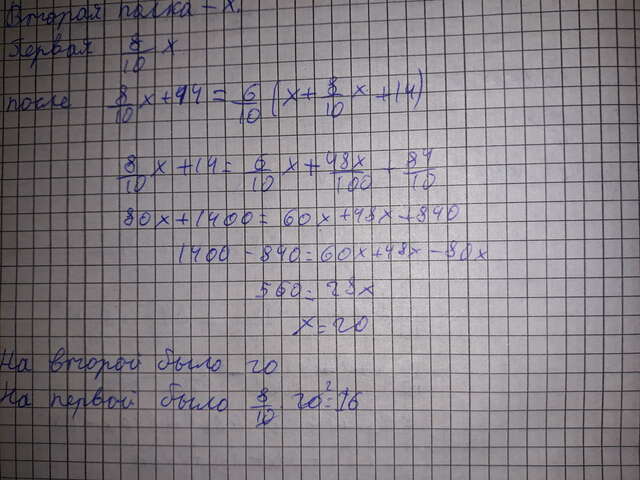 Вторая полка - x.
Первая 8/10 x
после 8/10 x + 14 = 6/10 (x + 8/10 x + 14)
8/10 x + 14 = 6/10 x + 48x/100 + 84/10
80x + 1400 = 60x + 48x + 840
1400 - 840 = 60x + 48x - 80x
560 = 28x
x = 20
На второй было 20
На первой было 8/10 20² = 16